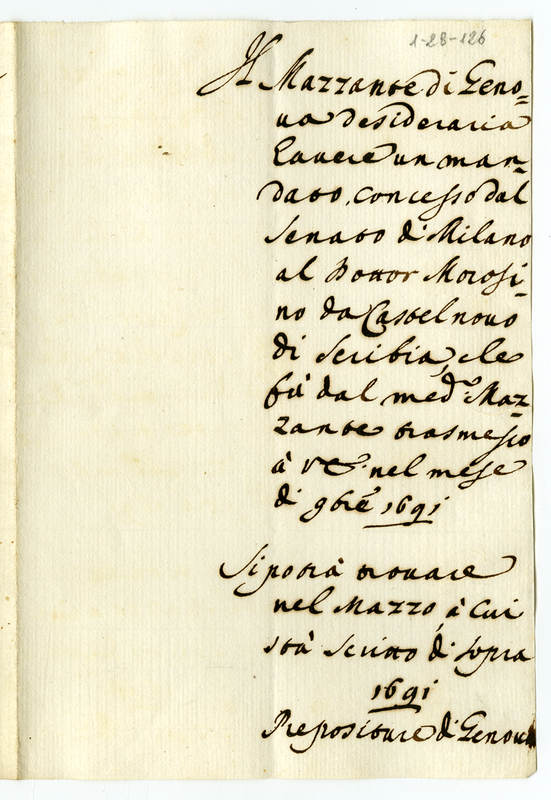 1-28-126
Il Mazzante di Geno=
ua desideraria
hauere un man=
dato, concesso dal
Senato di Milano
al Dottor Morosi=
no da Castelnouo
di Scribia, che
fù dal med.º Maz=
zante trasmesso
à V nel mese
di 9bre 1691
Si potrà trouare
nel Mazzo, à cui
stà scritto di sopra
1691
Prepositure di Genoua